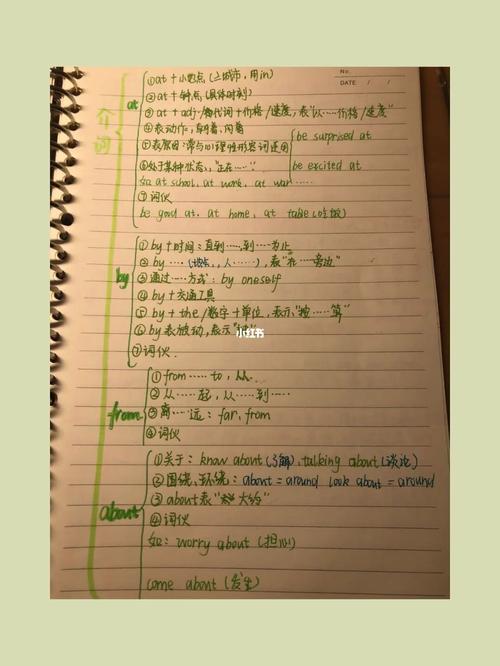 No.
DATE / /
介词
at
①at + 小地点 (大城市,用in)
②at + 钟点 (具体时刻)
③ at + adj·物代词 + 价格/速度, 表"以……价格/速度"
④表动作, 朝着、向着
⑤表原因:常与心理性形容词连用 be surprised at
be excited at
⑥处于某种状态, "正在……"
如 at school, at work, at war……
⑦词伙
be good at, at home, at table(吃饭)
by
①by + 时间:直到……,到……为止
②by ……(地点, 人……), 表"在…旁边"
③通过……方式: by oneself
④by + 交通工具
⑤by + the/数字 + 单位, 表示"按……算"
⑥by 表被动, 表示"被"
小红书
⑦词伙.
from
①from …… to, 从.
②从……起, 从……到……
③离……远: far, from
④词伙
about
①关于: know about (了解), talking about (谈论)
②围绕、环绕: about = around look about = around
③about表"大约"
④词伙
如: worry about (担心)
come about (发生)